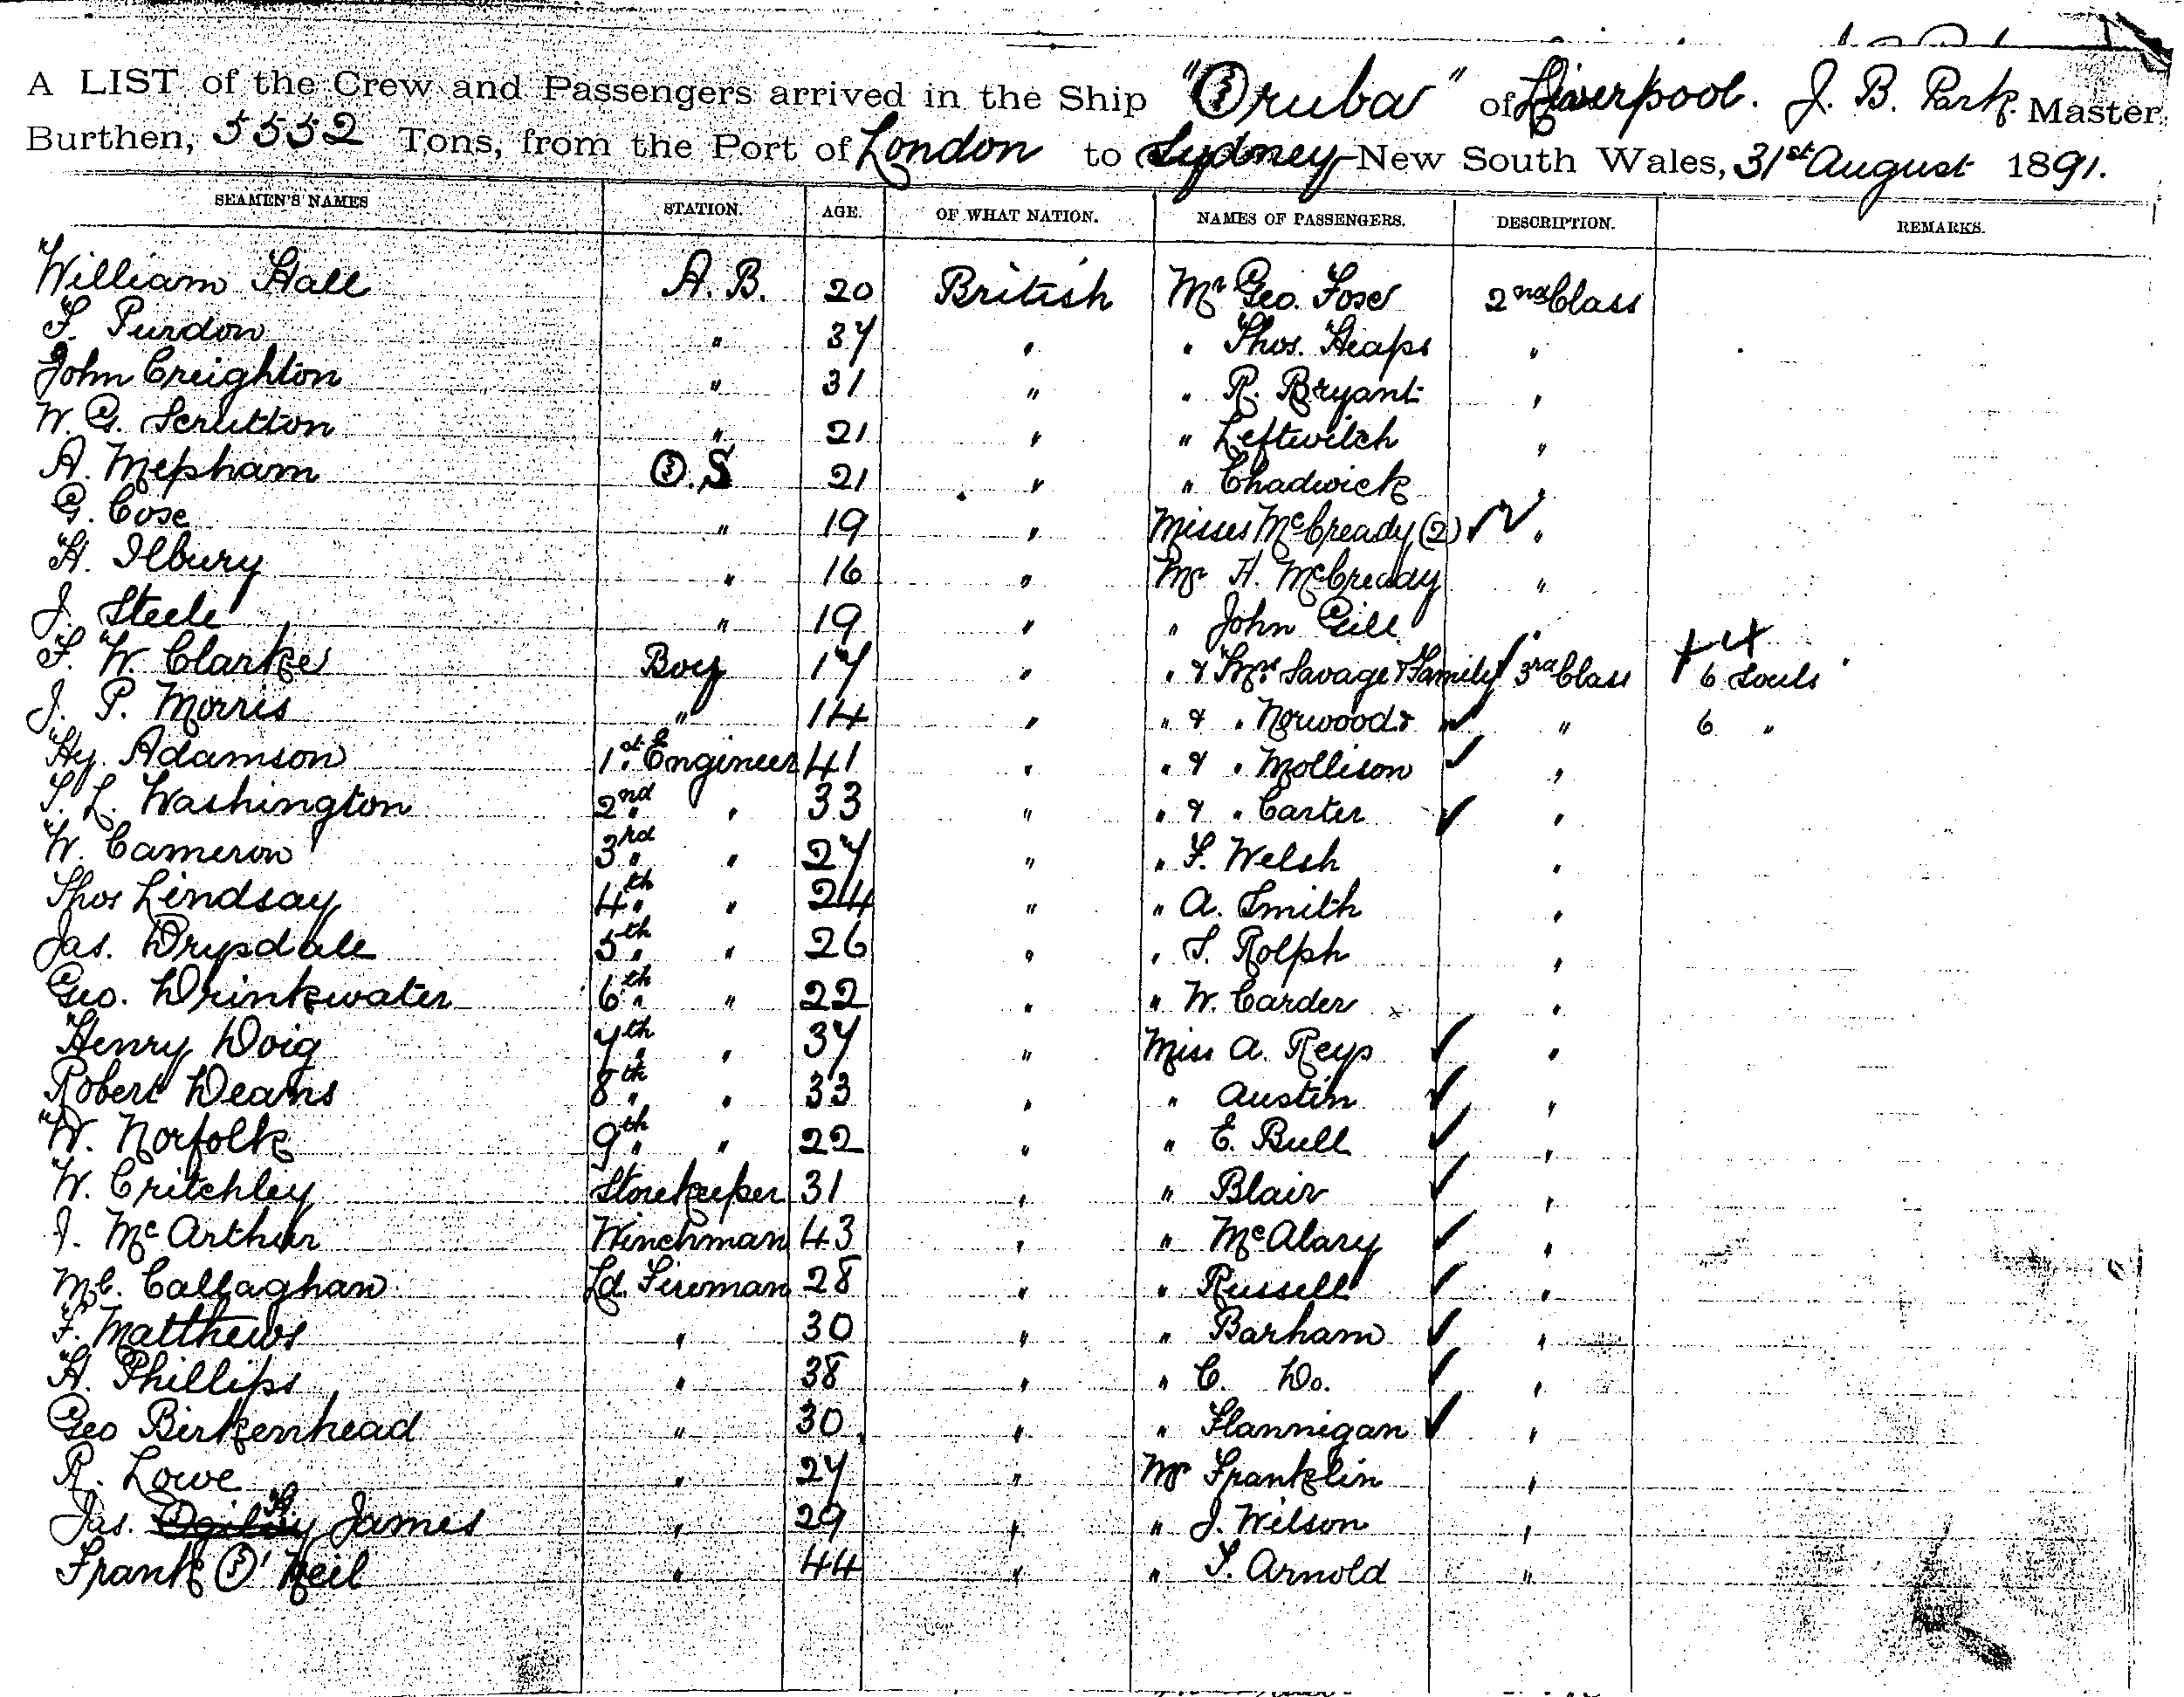 A LIST of the Crew and Passengers arrived in the Ship "Oruba" of Liverpool. J. B. Park. Master,
Burthen, 5552 Tons, from the Port of London to Sydney New South Wales, 31st August 1891.
SEAMEN'S NAMES STATION. AGE. OF WHAT NATION. NAMES OF PASSENGERS. DESCRIPTION. REMARKS.
William Hall A. B. 20 British Mr Geo. Fose 2nd Class
F. Purdon " 37 " " Thos. Heaps "
John Creighton " 31 " " R. Bryant "
W. G. Scrutton " 21 " " Leftwitch "
A. Mepham O. S 21 " " Chadwick "
G. Cose " 19 " Misses McCready (2) "
H. Ilbury " 16 " Mr H. McCready "
J. Steele " 19 " " John Gill "
F. W. Clarke Boy 17 " " & Mrs Savage & Family 3rd Class 6 Souls
J. P. Morris " 14 " " & " Norwood & " " 6 "
Hy. Adamson 1st Engineer 41 " " & " Mollison "
S. L. Washington 2nd " 33 " " & " Carter "
W. Cameron 3rd " 27 " " F. Welsh "
Thos Lindsay 4th " 24 " " A. Smith "
Jas. Drysdale 5th " 26 " " S. Rolph "
Geo. Drinkwater 6th " 22 " " W. Carder "
Henry Doig 7th " 37 " Miss A. Reys "
Robert Deans 8th " 33 " " Austin "
W. Norfolk 9th " 22 " " E. Bull "
W. Critchley Storekeeper 31 " " Blair "
J. McArthur Winchman 43 " " McAlary "
Ml. Callaghan Ld. Fireman 28 " " Russell "
F. Matthews " 30 " " Barham "
H. Phillips " 38 " " C. Do. "
Geo Birkenhead " 30 " " Flannigan "
R. Lowe " 27 " Mr Franklin "
Jas. Ogilvy H James " 29 " " J. Wilson "
Frank O'Neil " 44 " " S. Arnold "